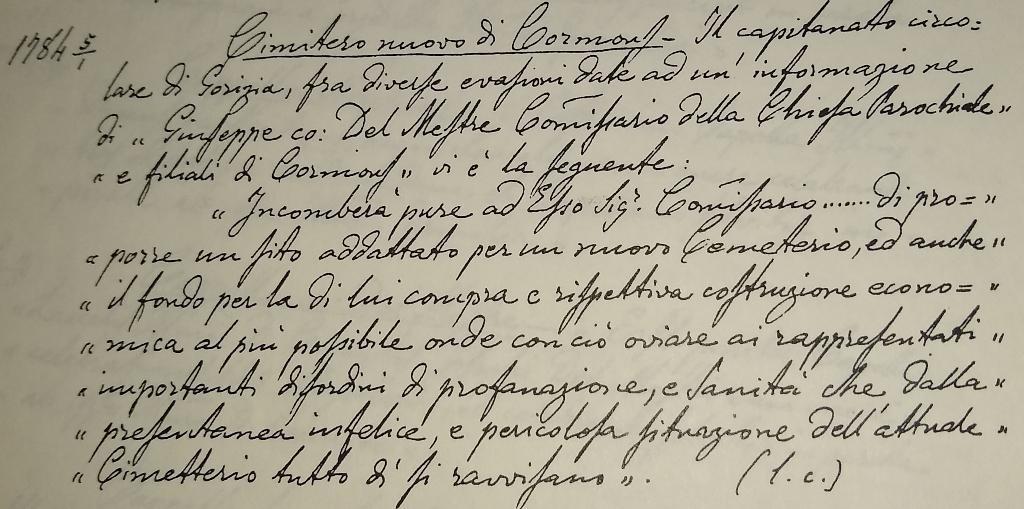 1784 5/1 Cimitero nuovo di Cormons - Il capitanato circo=
lare di Gorizia, fra diverse evasioni date ad un' informazione
di „ Giuseppe co: Del Mestre Com̅issario della Chiesa Parochiale „
„ e filiali di Cormons „ vi è la seguente:
„ Incomberà pure ad Esso Sigr. Com̅issario ....... di pro= „
„ porre un sito addattato per un nuovo Cemeterio, ed anche „
„ il fondo per la di lui compra e rispettiva costruzione econo= „
„ mica al più possibile onde con ciò oviare ai rappresentati „
„ importanti disordini di profanazione, e sanità che dalla „
„ presentanea infelice, e pericolosa situazione dell' attuale „
„ Cimetterio tutto dì si ravvisano „. (l. c.)